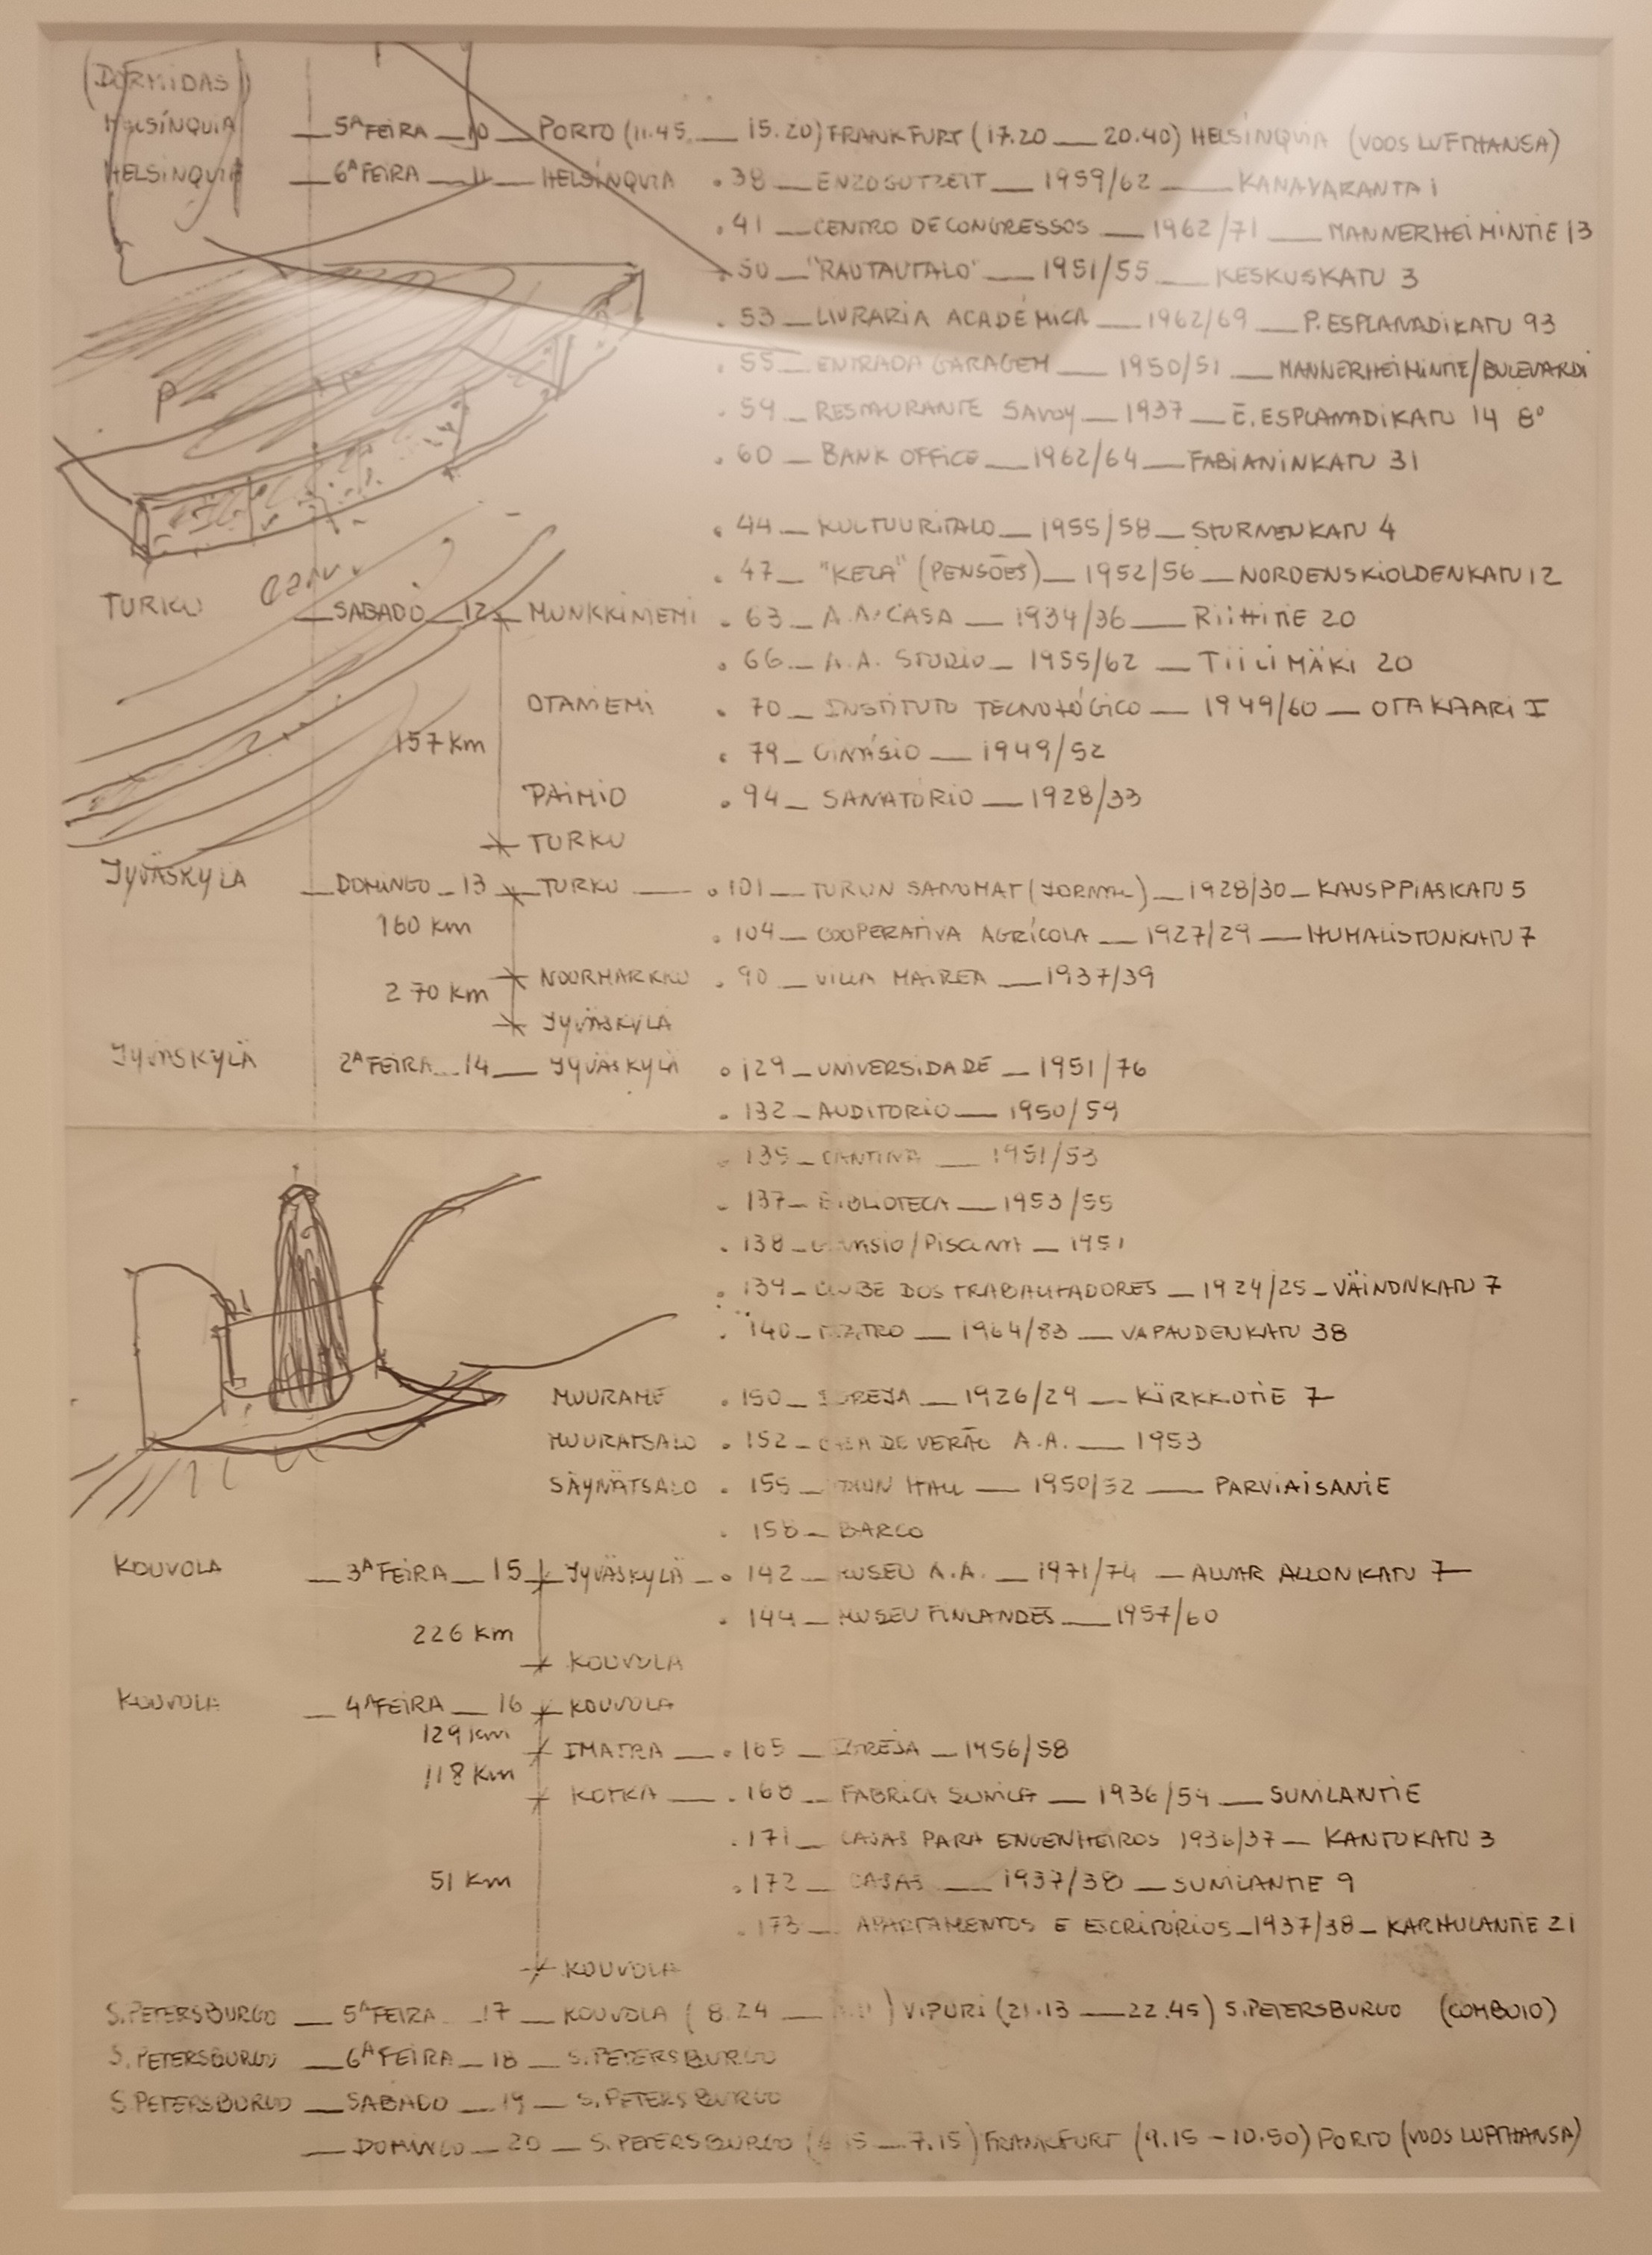 (DORMIDAS)
HELSÍNQUIA __ 5ª FEIRA __ 10 __ PORTO (11.45 __ 15.20) FRANKFURT (17.20 __ 20.40) HELSÍNQUIA (VOOS LUFTHANSA)
HELSÍNQUIA __ 6ª FEIRA __ 11 __ HELSÍNQUIA . 38 __ ENZOGUTZEIT __ 1959/62 __ KANAVARANTA 1
. 41 __ CENTRO DE CONGRESSOS __ 1962/71 __ MANNERHEIMINTIE 13
. 50 __ "RAUTAUTALO" __ 1951/55 __ KESKUSKATU 3
. 53 __ LIVRARIA ACADÉMICA __ 1962/69 __ P. ESPLANADIKATU 93
. 55 __ ENTRADA GARAGEM __ 1950/51 __ MANNERHEIMINTIE/BULEVARDI
. 59 __ RESTAURANTE SAVOY __ 1937 __ E. ESPLANADIKATU 14 8º
. 60 __ BANK OFFICE __ 1962/64 __ FABIANINKATU 31
. 44 __ KULTUURITALO __ 1955/58 __ STURNENKATU 4
. 47 __ "KELA" (PENSÕES) __ 1952/56 __ NORDENSKIOLDENKATU 12
TURKU __ SABADO __ 12 __ MUNKKINIEMI . 63 __ A.A. CASA __ 1934/36 __ RIIHITIE 20
. 66 __ A.A. STUDIO __ 1955/62 __ TIILIMÄKI 20
OTANIEMI . 70 __ INSTITUTO TECNOLÓGICO __ 1949/60 __ OTAKAARI I
157 Km
. 79 __ GINÁSIO __ 1949/52
PAIMIO . 94 __ SANATÓRIO __ 1928/33
TURKU
JYVÄSKYLA __ DOMINGO __ 13 __ TURKU __ . 101 __ TURUN SANOMAT (JORNAL) __ 1928/30 __ KAUSPPIASKATU 5
160 Km . 104 __ COOPERATIVA AGRÍCOLA __ 1927/29 __ HUMALISTONKATU 7
NOORMARKKU . 90 __ VILLA MAIREA __ 1937/39
270 Km
JYVÄSKYLÄ
JYVÄSKYLÄ 2ª FEIRA __ 14 __ JYVÄSKYLÄ . 129 __ UNIVERSIDADE __ 1951/76
. 132 __ AUDITORIO __ 1950/59
. 135 __ CANTINA __ 1951/53
. 137 __ BIBLIOTECA __ 1953/55
. 138 __ GINASIO/PISCINA __ 1951
. 139 __ CLUBE DOS TRABALHADORES __ 1924/25 __ VÄINONKATU 7
. 140 __ TEATRO __ 1964/83 __ VAPAUDENKATU 38
MUURAME . 150 __ IGREJA __ 1926/29 __ KIRKKOTIE 7
MUURATSALO . 152 __ CASA DE VERÃO A.A. __ 1953
SÄYNÄTSALO . 155 __ TOWN HALL __ 1950/52 __ PARVIAISANIE
. 158 __ BARCO
KOUVOLA __ 3ª FEIRA __ 15 __ JYVÄSKYLÄ __ . 142 __ MUSEU A.A. __ 1971/74 __ ALVAR ALLONKATU 7
. 144 __ MUSEU FINLANDÊS __ 1957/60
226 Km
KOUVOLA
KOUVOLA __ 4ª FEIRA __ 16 __ KOUVOLA
129 Km
IMATRA __ . 165 __ IGREJA __ 1956/58
118 Km
KOTKA __ . 168 __ FABRICA SUNILA __ 1936/54 __ SUNILANTIE
. 171 __ CASAS PARA ENGENHEIROS 1936/37 __ KANTOKATU 3
51 Km . 172 __ CASAS __ 1937/38 __ SUNILANTIE 9
. 173 __ APARTAMENTOS E ESCRITÓRIOS __ 1937/38 __ KARHULANTIE 21
KOUVOLA
S. PETERSBURGO __ 5ª FEIRA __ 17 __ KOUVOLA (8.24 __ ) VIPURI (21.13 __ 22.45) S. PETERSBURGO (COMBOIO)
S. PETERSBURGO __ 6ª FEIRA __ 18 __ S. PETERSBURGO
S. PETERSBURGO __ SABADO __ 19 __ S. PETERSBURGO
__ DOMINGO __ 20 __ S. PETERSBURGO ( __ 7.15) FRANKFURT (9.15 - 10.50) PORTO (VOOS LUFTHANSA)